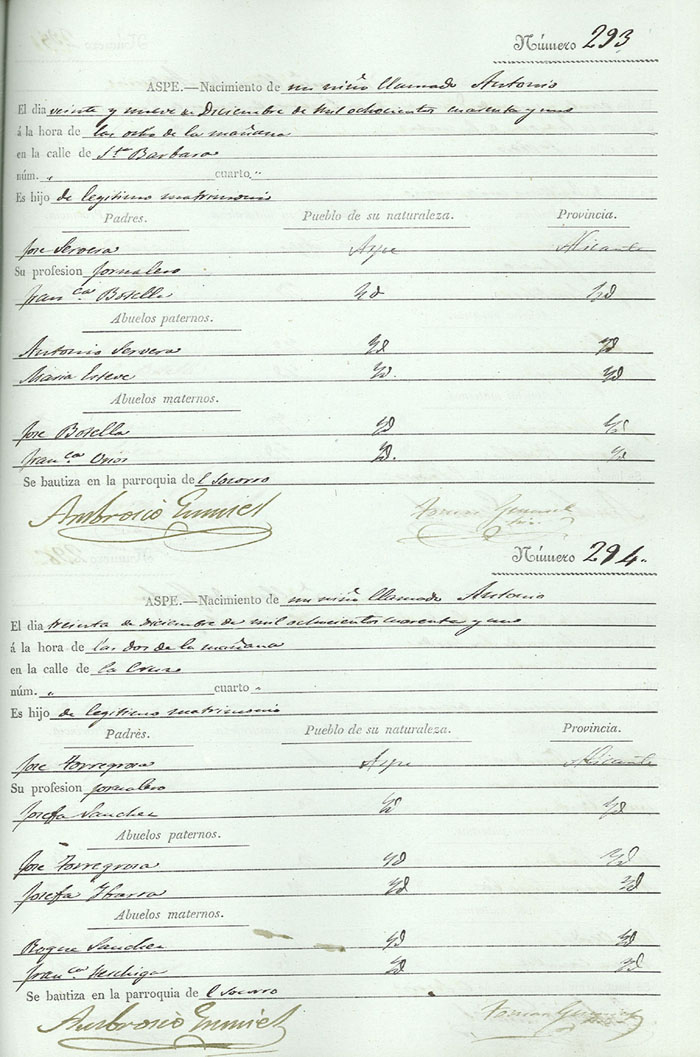 Número 293
ASPE.—Nacimiento de un niño llamado Antonio
El dia veinte y nueve de Diciembre de mil ochocientos cuarenta y uno
á la hora de las ocho de la mañana
en la calle de Sta Barbara
núm. " cuarto "
Es hijo de legitimo matrimonio
Padres. Pueblo de su naturaleza. Provincia.
Jose Servera Aspe Alicante
Su profesion jornalero
Franca Botella Yd Yd
Abuelos paternos.
Antonio Servera Yd Yd
Maria Esteve Yd. Yd
Abuelos maternos.
Jose Botella Yd Yd
Franca Yd. Yd
Se bautiza en la parroquia del Socorro
Ambrosio
Número 294.
ASPE.—Nacimiento de un niño llamado Antonio
El dia treinta de diciembre de mil ochocientos cuarenta y uno
á la hora de las dos de la mañana
en la calle de la Cruz
núm. " cuarto "
Es hijo de legitimo matrimonio
Padres. Pueblo de su naturaleza. Provincia.
Jose Torregrosa Aspe Alicante
Su profesion jornalero
Josefa Sanchez Yd Yd
Abuelos paternos.
Jose Torregrosa Yd Yd
Josefa Ybarra Yd Yd
Abuelos maternos.
Roque Sanchez Yd Yd
Franca Yd Yd
Se bautiza en la parroquia del Socorro
Ambrosio